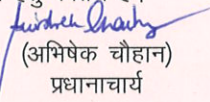 (अभिषेक चौहान)
प्रधानाचार्य